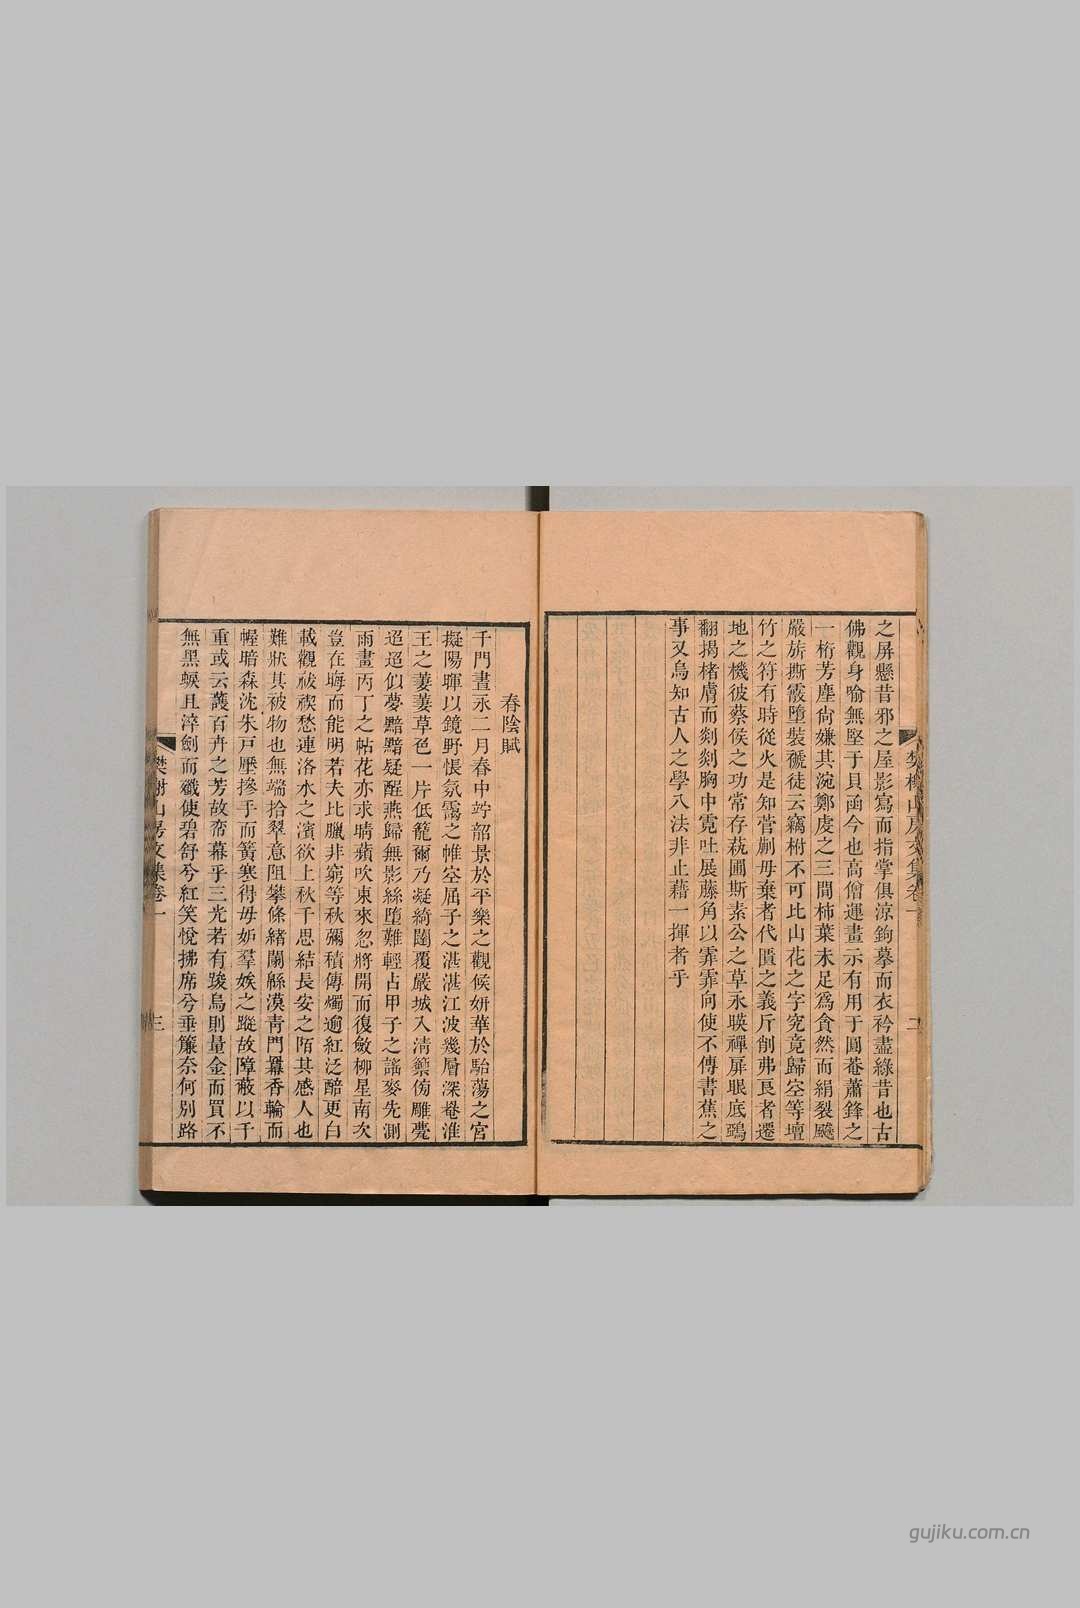 之屏懸昔邪之屋影寫而指掌俱涼鉤摹而衣衿盡綠昔也古
佛觀身喻無堅于貝函今也高僧運畫示有用于圓菴蕭鋒之
一桁芳塵尚嫌其涴鄭虔之三間柿葉未足爲貪然而絹裂飈
嚴旂撕霞墮裝褫徒云竊柎不可比山花之字究竟歸空等壇
竹之符有時從火是知菅蒯毋棄者代匱之義斤削弗良者遷
地之機彼蔡侯之功常存萟圃斯素公之草永暎禪屏眼底鵶
翻揭楮膚而剡剡胸中霓吐展藤角以霏霏向使不傳書蕉之
事又烏知古人之學八法非止藉一揮者乎
樊榭山房文集卷一
二
春陰賦
千門晝永二月春中竚韶景於平樂之觀候妍華於駘蕩之宮
擬陽暉以鏡野悵氛靄之帷空屈子之湛湛江波幾層深巷淮
王之萋萋草色一片低籠爾乃凝綺閣覆嚴城入清籞傍雕甍
迢迢似夢黯黯疑醒燕歸無影絲墮難輕占甲子之謠麥先測
雨畫丙丁之帖花亦求晴蘋吹東來忽將開而復斂柳星南次
豈在晦而能明若夫比臘非窮等秋彌積傳燭逾紅泛醅更白
載觀祓禊愁連洛水之濱欲上秋千思結長安之陌其感人也
難狀其被物也無端拾翠意阻攀條緒闌緜漠青門羃香輪而
幄暗森沈朱戸壓摻手而簧寒得毋妒羣娭之蹤故障蔽以千
重或云護百卉之芳故帟幕乎三光若有踆烏則量金而買不
無黑蜧且淬劍而殲使碧舒兮紅笑悅拂席兮垂簾奈何別路
樊榭山房文集卷一
三
gujiku.com.cn